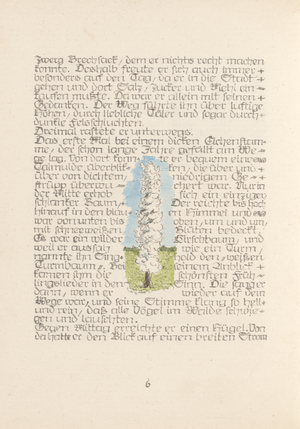 Zwerg Brechsack, dem er nichts recht machen
konnte. Deshalb freute er sich auch immer
besonders auf den Tag, da er in die Stadt
gehen und dort Salz, Zucker und Mehl ein-
kaufen mußte. Da war er allein mit seinen
Gedanken. Der Weg führte ihn über luftige
Höhen, durch liebliche Täler und sogar durch
dunkle Felsschluchten.
Dreimal rastete er unterwegs.
Das erste Mal bei einem dicken Eichenstam-
me, der schon lange Jahre gefällt am We-
ge lag. Von dort konn- te er bequem eine
Talmulde überblik- ken, die über und
über von dichtem, niedrigem Ge-
strüpp überwu- chert war. Nur in
der Mitte erhob sich ein einziger
schlanker Baum. Der reichte bis hoch
hinauf in den blau- en Himmel und
war von unten bis oben, um und um
mit schneeweißen Blüten bedeckt.
Es war ein wilder Kirschbaum, und
weil er aussah wie ein Turm,
nannte ihn Sing hold den weißen
Turmbaum. Bei seinem Anblick
kamen ihm die schönsten Früh-
lingslieder in den Sinn. Die sang er
dann, wenn er wieder auf dem
Wege war, und seine Stimme klang so hell
und rein, daß alle Vögel im Walde schwie-
gen und lauschten.
Gegen Mittag erreichte er einen Hügel. Von
da hatte er den Blick auf einen breiten Strom
6